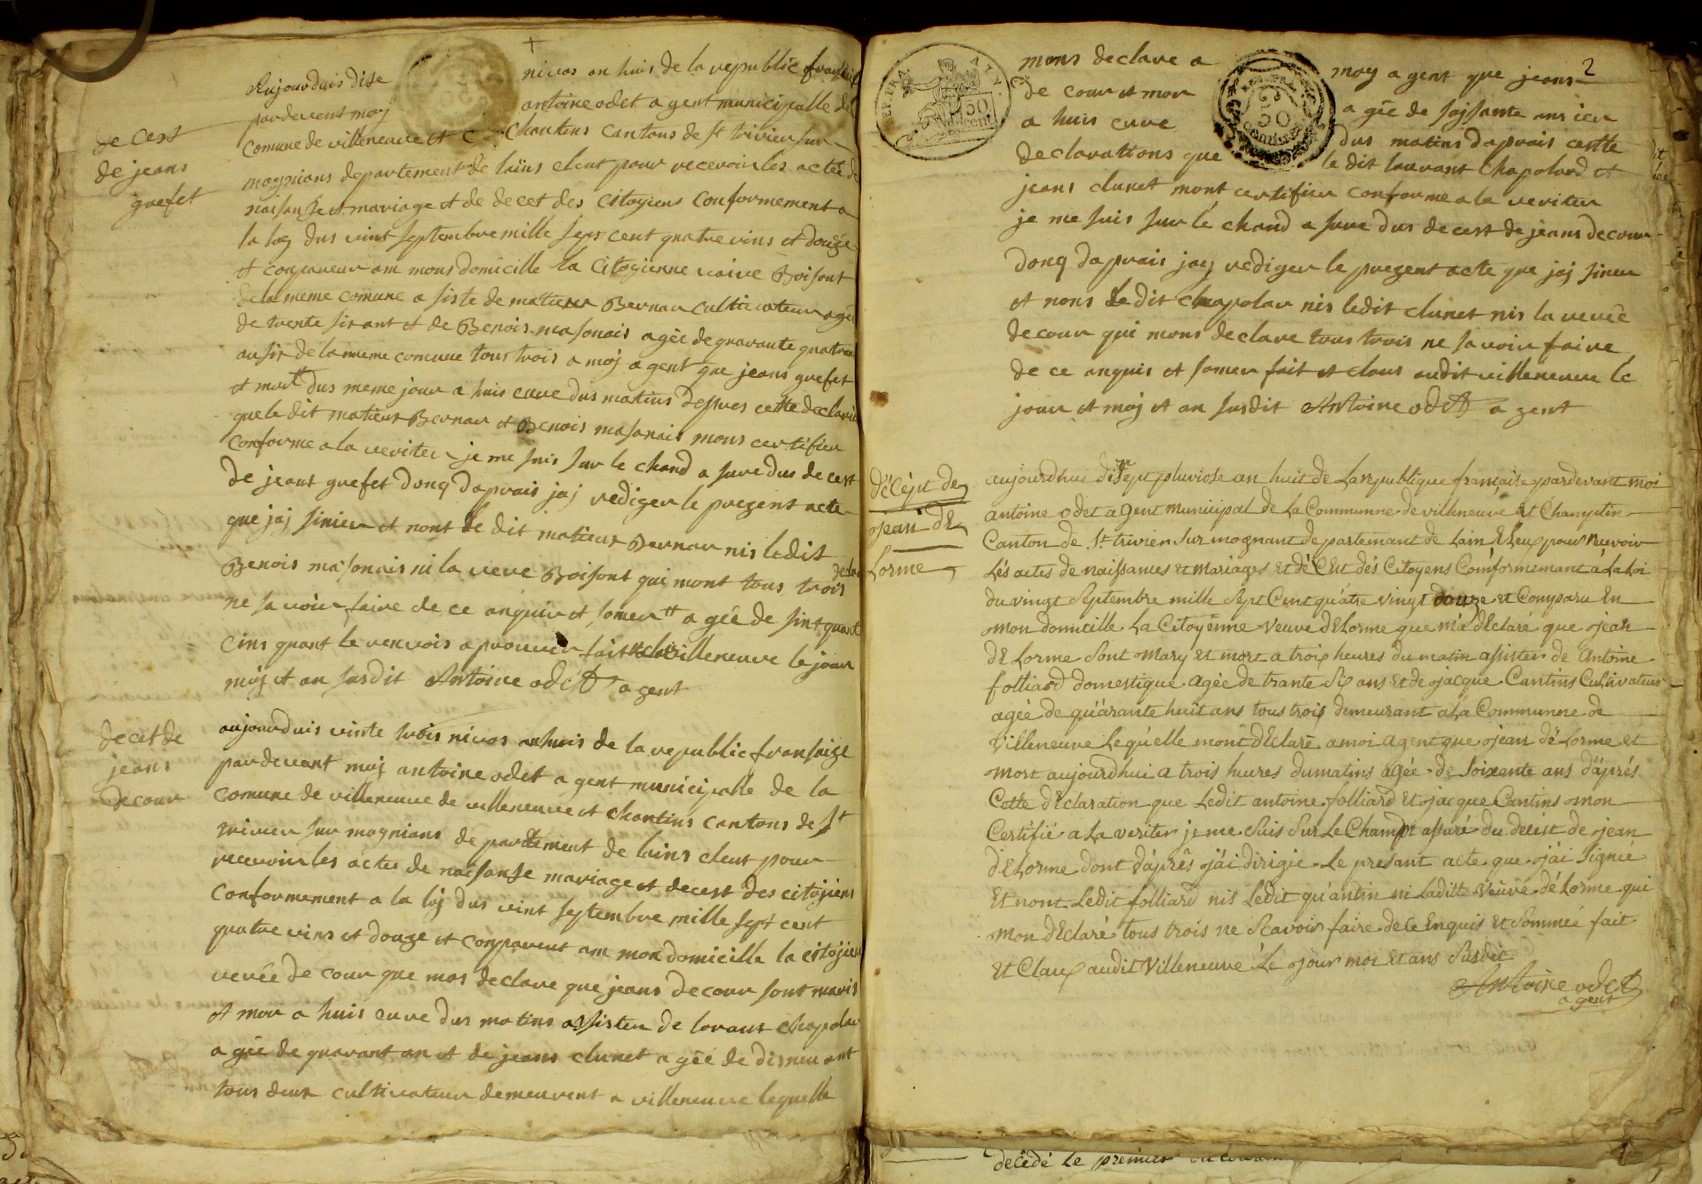 de cest
de jeans
guefet
Aujourduis dise nivos an huis de la republic fransaise
pardevent moj antoine odet agent municipalle de
Comune de villeneuve et chantins cantons de st trivier sur
mognians departement de lains eleut pour recevoir les actes de
naisanse et mariage et de decet des citoyiens Conformement a
la loy dus vint septembre mille sept cent quatre vins et douze
et conpareur am mons domicille la Citoyienne vaive Boisont
de la meme comune a siste de matieur Bernar cultivateur agée
de trente sis ant et de Benois masonais agée de quarante quatre
ausis de la meme comune tous trois a moj agent que jeans guefet
et mort dus meme jour a huis eure dus matins depres cette declara
que le dit matieur Bernar et Benois masonais mons certifier
conforme a la veriter je me suis sur le chand a sure dus de cest
de jeans guefet donq daprais jaj rediger le prezent acte
que jaj sinier et nont le dit matieur Bernar nis ledit
Benois masonais ni la veve Boisont qui mont tous trois declare
ne savoir faire de ce anquir et somer agée de sinquant
cins quant le renvois aprouver fait a villeneuve le jour
moj et an susdit Antoine odet agent
decet de
jeans
decour
aujourduis vinte trois nivos anhuis de la republic fransaize
pardevant moj antoine odet agent municipalle de la
comune de villeneuve de villeneuve et chantins cantons de st
trivier sur mognians departement de lains eleut pour
recevoir les actes de naisanse mariage et decest des citoyiens
Conformement a la loj dus vint septembre mille sept cent
quatre vins et douze et conparent am mon domicille la citojiene
veuve decour que mos declare que jeans decour sont maris
et mor a huis eure dus matins assister de loraut chapolar
agée de quarant an et de jeans clunet agée de disneu ant
tous deux cultivateur demeurent a villeneuve lequelle
2
mons declare a moy agent que jeans
de cour et mor agée de soissante ans ier
a huis eure dus matins daprais cestte
declarations que le dit lauvant Chapolard et
jeans clunet mont certifier conforme a la veriter
je me suis sur le chand a sure dus decest de jeans decour
donq daprais jaj rediger le prezent acte que jaj siner
et nons le dit chapolar nis ledit clunet nis la veuvè
decour qui mons declare tous trois ne savoir faire
de ce anquis et somer fait et clous audit villeneuve le
jour et moj et an susdit Antoine odet agent
décéjt de
jean de
Lorme
aujourdhui disept pluviose an huit de La republique française pardevant moi
antoine odet agent municipal de La Commune de villeneuve et Champtin
Canton de St trivier sur mognant departemant de Lain Eleu pour recevoir
Les actes de naissances et Mariages et décest dés Citoyens Comformemant à La Loi
du vingt septembre mille sept Cent quatre vingt douze et Comparu En
mon domicille La Citoyenne Veuve deLorme que ma declare que jean
de Lorme sont Mary et mort a trois heures du matin assister de antoine
folliard domestique agée de trante six ans et de jacque Cantins Cultivateur
agée de quarante huit ans tous trois demeurant a La Commune de
Villeneuve Lequelle mont déclaré a moi agent que jean de Lorme et
mort aujourdhui a trois heures du matins agée de soixente ans d'après
Cette déclaration que Ledit antoine folliard et jacque Cantins mon
Certifié a La veriter je me suis sur Le Champt assuré du decist de jean
deLorme dont d'après j'ai dirigie Le presant acte que j'ai signée
et nont Ledit folliard nis Ledit quantin ni Laditte veuve deLorme qui
mon déclaré tous trois ne scavoir faire de Ce Enquis et sommée fait
et Claux audit Villeneuve Le jour moi et ans susdit
Antoine odet
agent
decédé Le premier